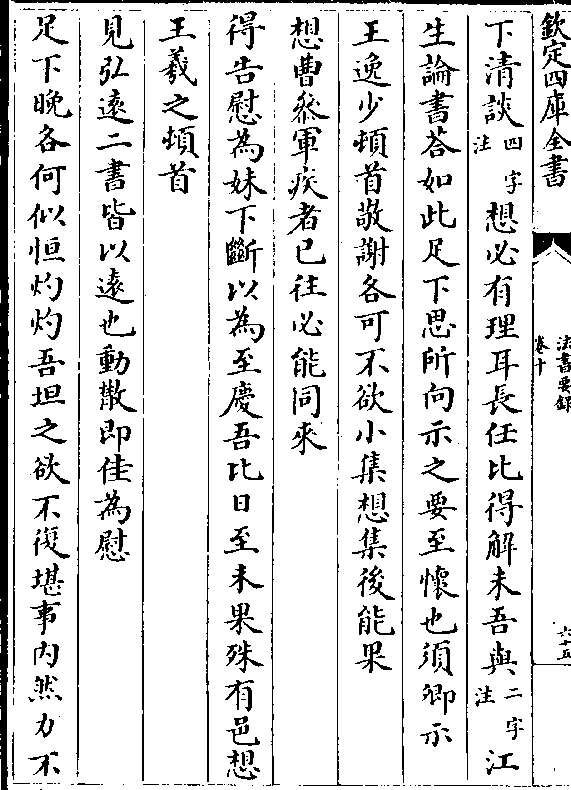 欽定四庫全書
法書要錄
卷十
六十五
下清談四字注想必有理耳長任比得解未吾與二字注江
生論書荅如此足下思所向示之要至懷也須卿示
王逸少頓首敬謝各可不欲小集想集後能果
想曹叅軍疾者已往必能同來
得告慰為妹下斷以為至慶吾比日至未果殊有邑想
王羲之頓首
見弘遠二書皆以遠也動散即佳為慰
足下晚各何似恒灼灼吾坦之欲不復堪事內然力不